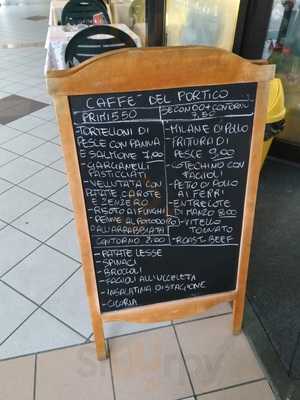 CAFFE' DEL PORTICO
PRIMI 5.50
-TORTELLONI DI
PESCE CON PANNA
E SALMONE 7,00
-GARGANELLI
PASTICCIATI
-VELLUTATA CON
PATATE CAROTE
E ZENZERO
-RISOTO AI FUNGHI
-PENNE AL POMODORO
O ALL'ARRABBIATA
CONTORNO 3.00
-PATATE LESSE
-SPINACI
-BROCCOLI
-FAGIOLI ALL'UCCELETA
-INSALATINA DI STAGIONE
-CICORIA
SECONDO+CONTORNO
7,50
-MILANE DI POLLO
-FRITURA DI
PESCE 9,00
-COTECHINO CON
FAGIOLI
-PETTO DI POLLO
AI FERRI
-ENTRECOTE
DI MANZO 8.00
-VITELLO
TONNATO
-ROAST-BEEF